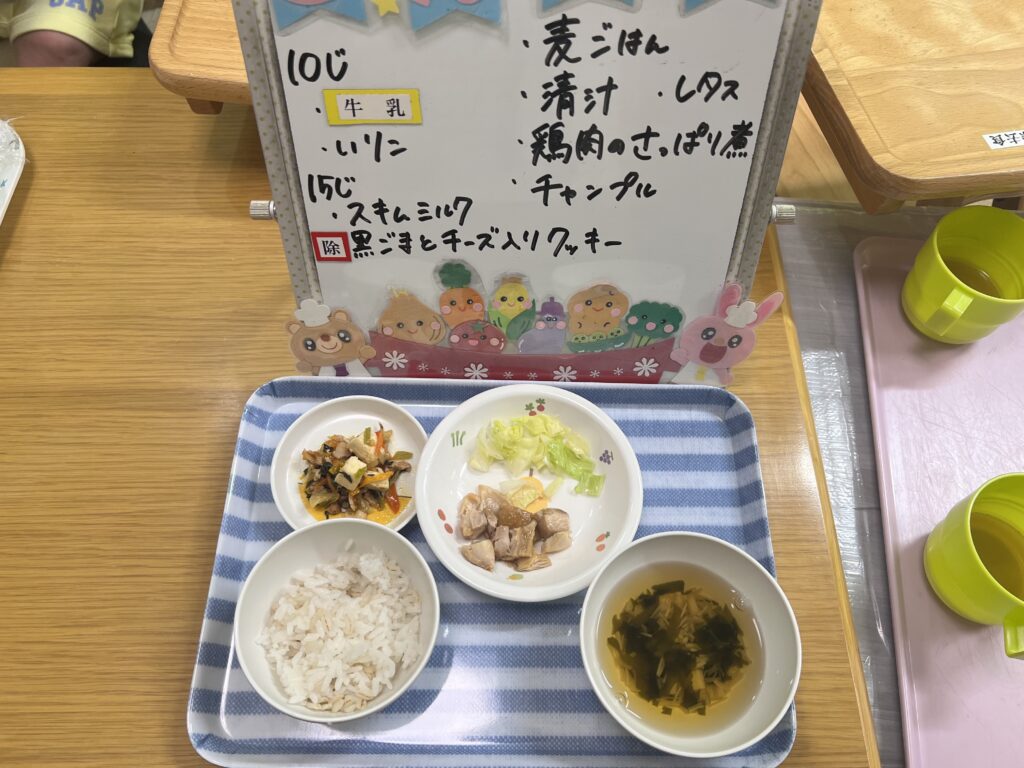 10じ
・牛乳
・いリンゴ
15じ
・スキムミルク
除 黒ごまとチーズ入りクッキー
・麦ごはん
・清汁 ・レタス
・鶏肉のさっぱり煮
・チャンプル
去食